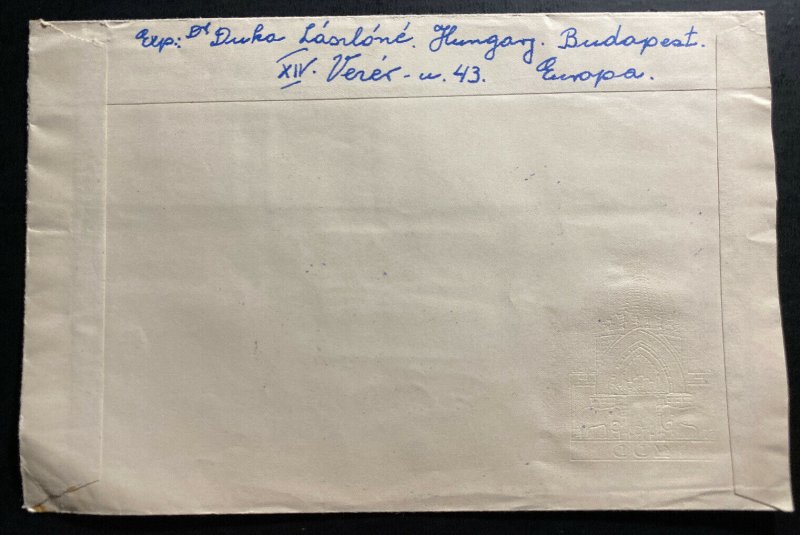 Exp: Dr Duka Lászlóné. Hungary. Budapest.
XIV. Vezér-u. 43. Europa.